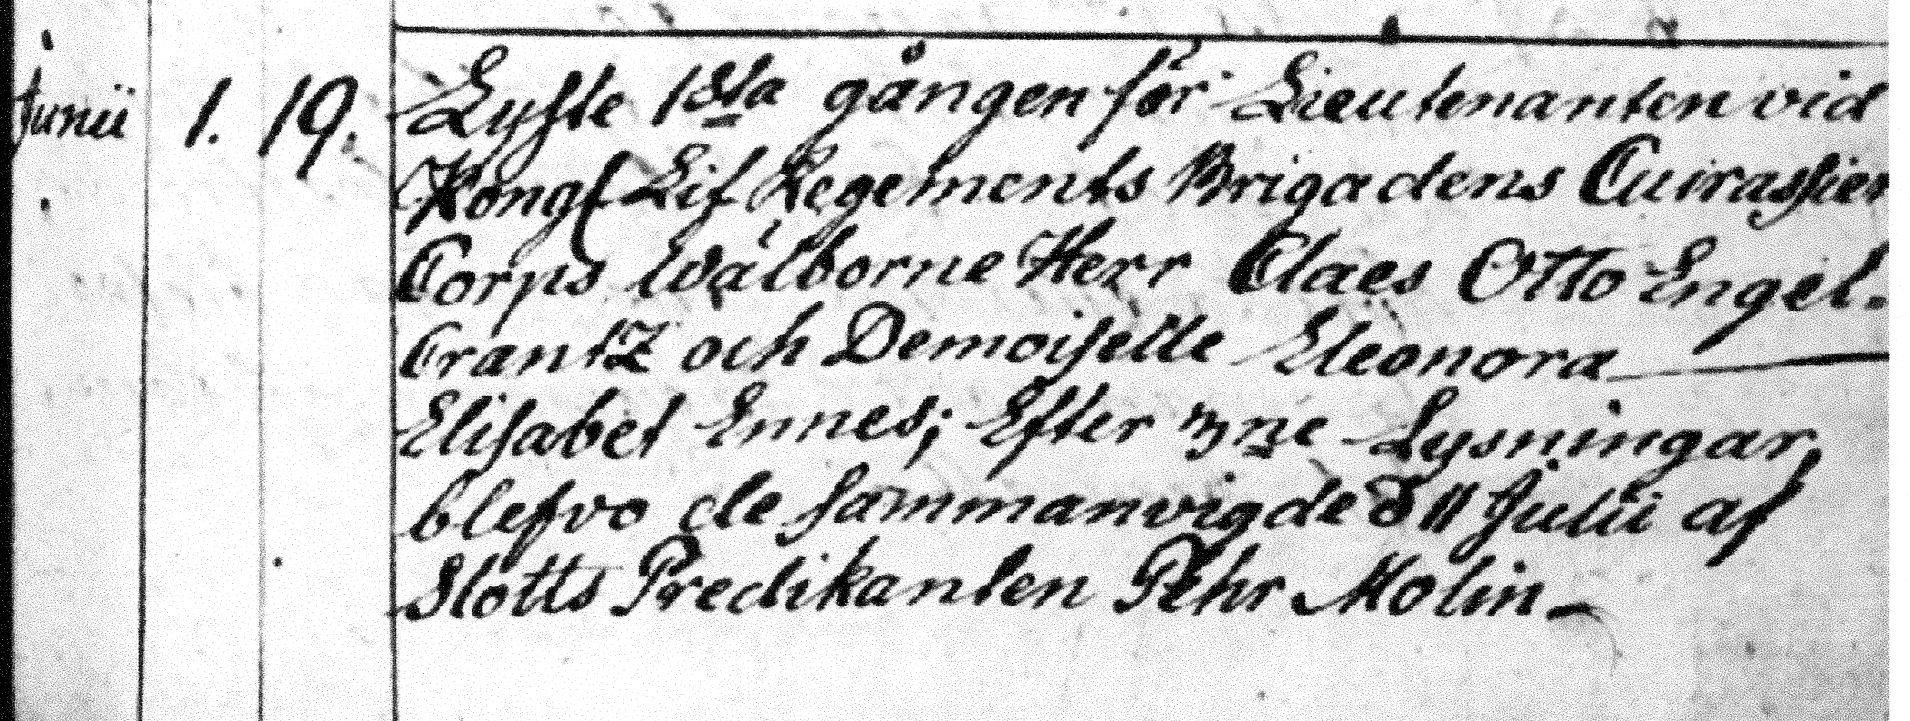 Junii 1. 19. Lyste 1sta gången för Lieutenanten vid
Kongl Lif Regements Brigadens Cuirassier
Corps Wälborne Herr Claes Otto Engel-
Crantz och Demoiselle Eleonora
Elisabet Ennes; Efter 3ne Lysningar
blefvo de sammanvigde d 11 Julii af
Slotts Predikanten Pehr Molin